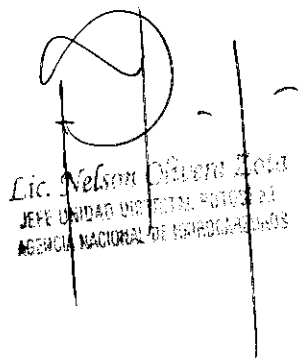 Lic. Nelson Olivera Zota
JEFE UNIDAD DISTRITAL POTOSÍ
AGENCIA NACIONAL DE HIDROCARBUROS